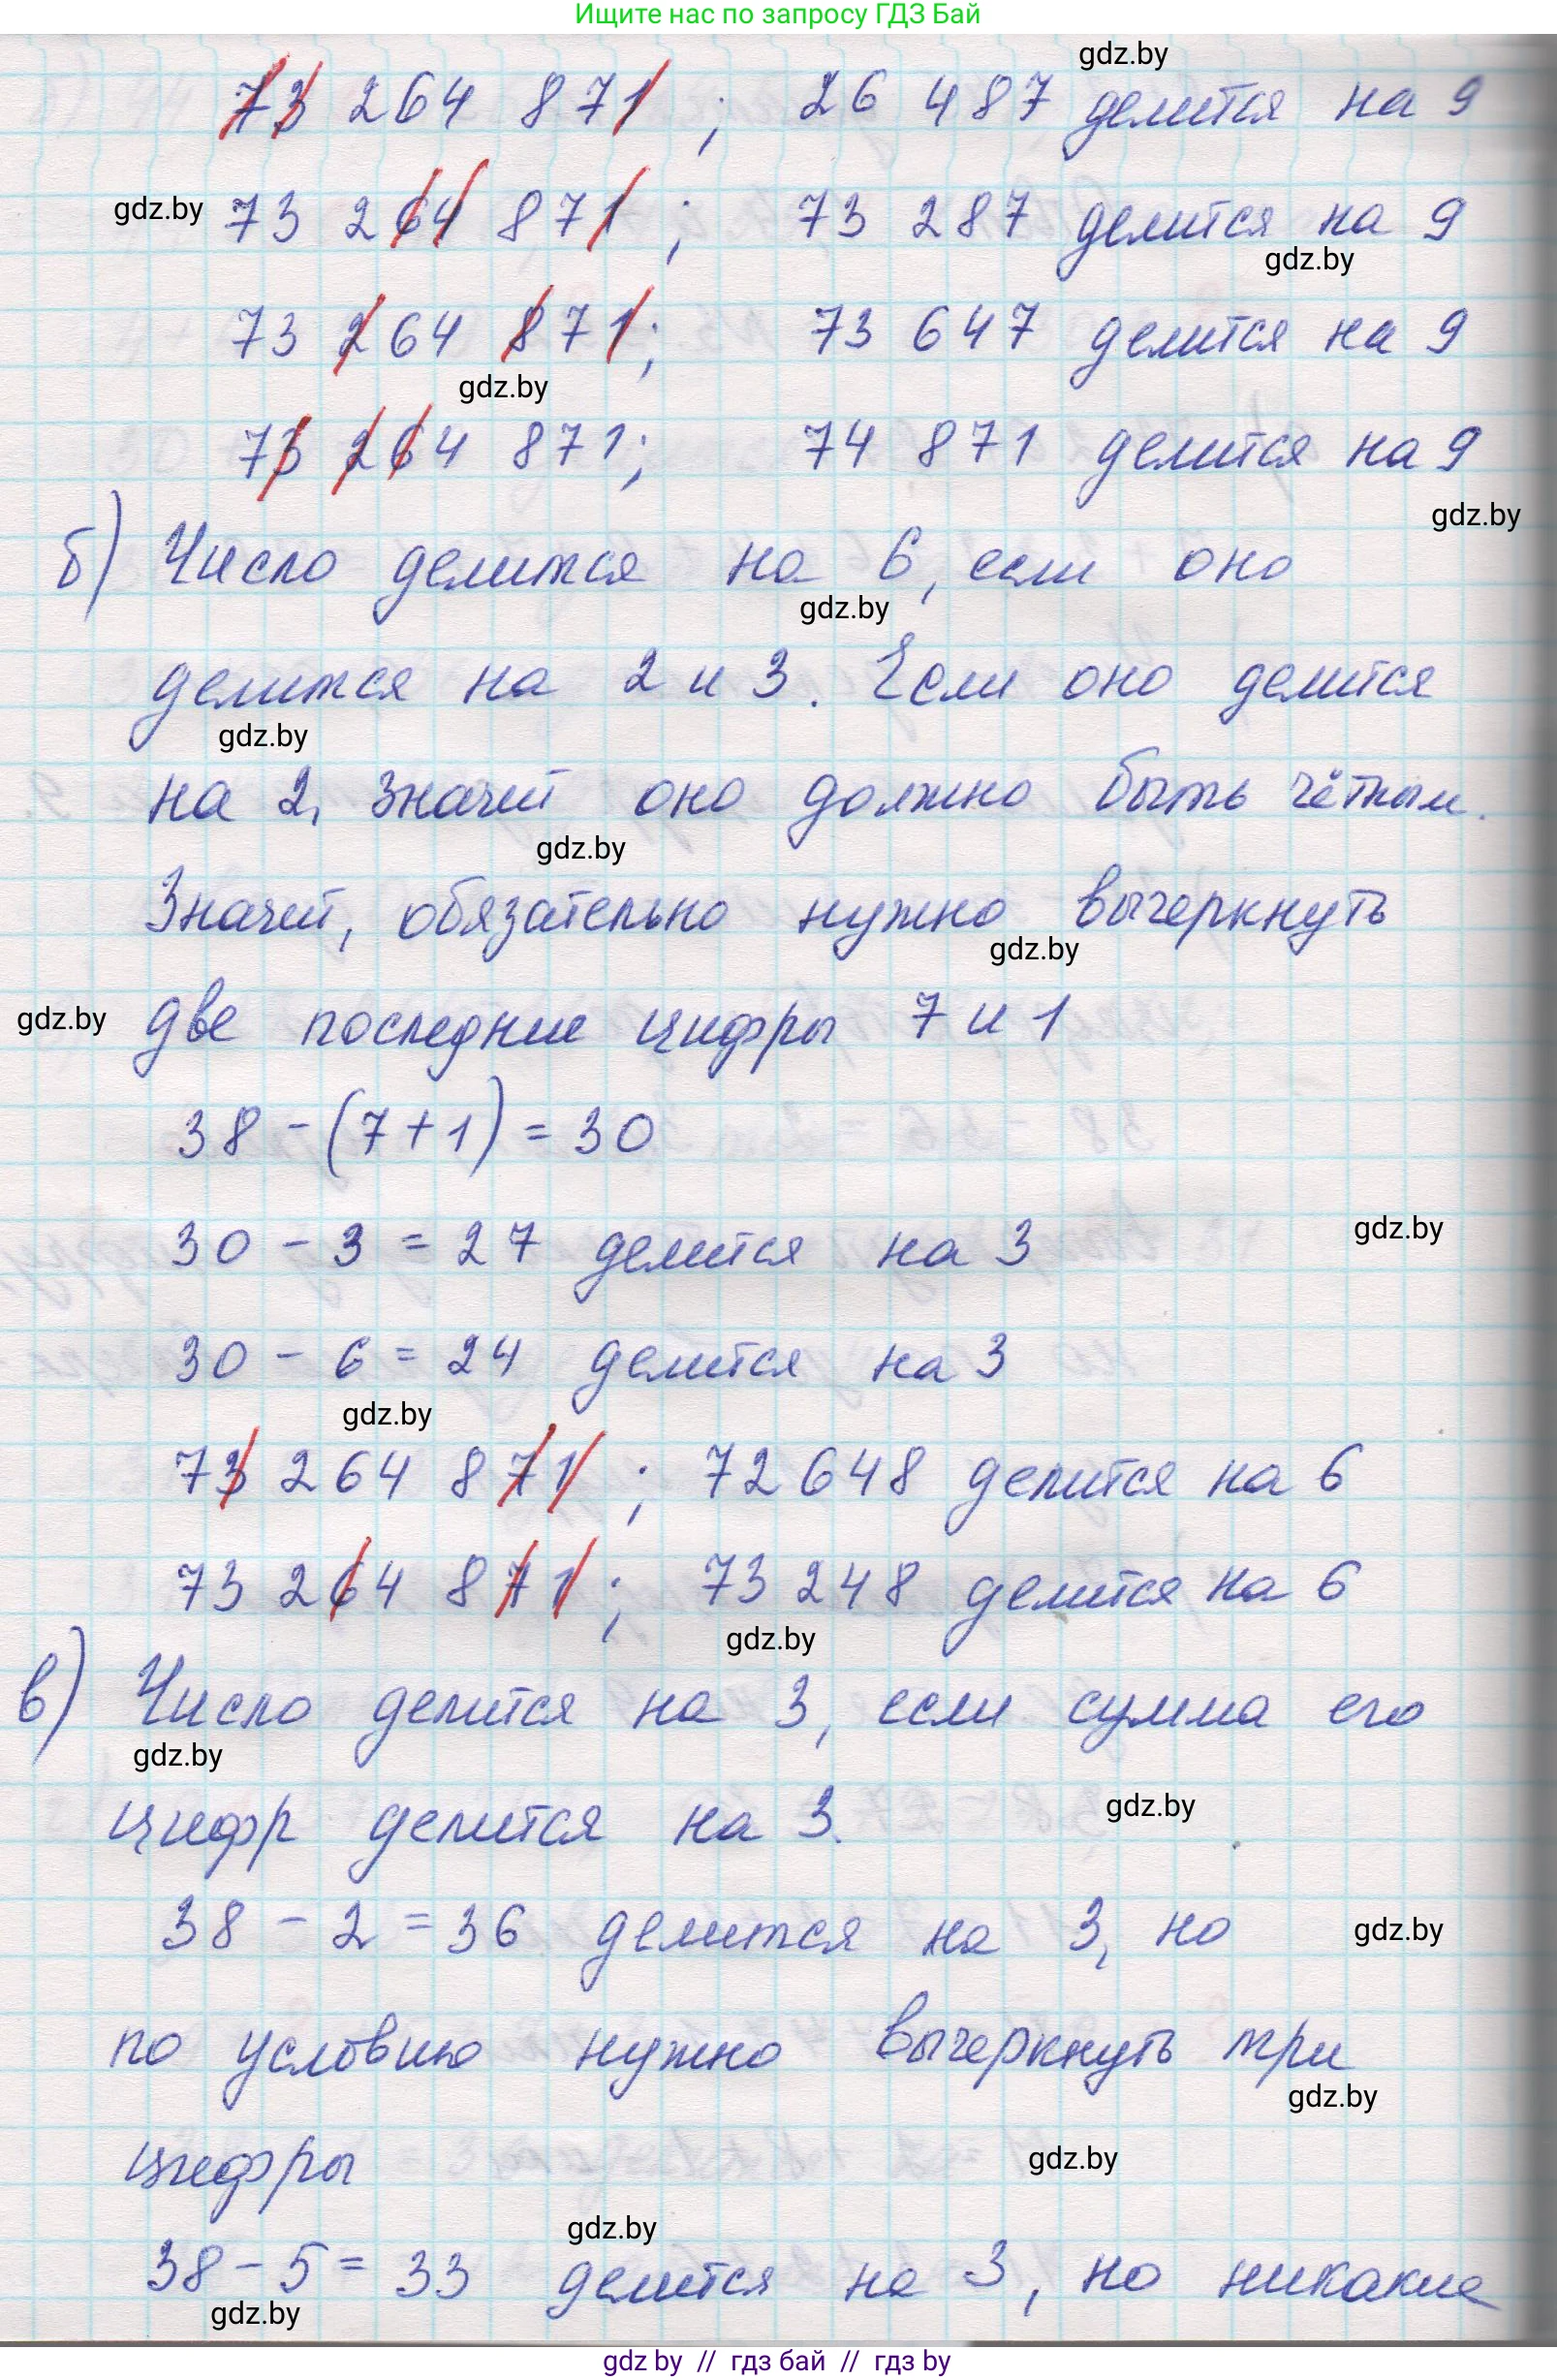 Ищите нас по запросу ГДЗ Бай
gdz.by
73 264 871; 26 487 делится на 9
gdz.by 73 264 871; 73 287 делится на 9
gdz.by
73 264 871; 73 647 делится на 9
gdz.by
73 264 871; 74 871 делится на 9
gdz.by
б) Число делится на 6, если оно
gdz.by
делится на 2 и 3. Если оно делится
gdz.by
на 2, значит оно должно быть чётным.
gdz.by
Значит, обязательно нужно вычеркнуть
gdz.by
gdz.by две последние цифры 7 и 1
38 - (7+1) = 30
30 - 3 = 27 делится на 3 gdz.by
30 - 6 = 24 делится на 3
gdz.by
73 264 871; 72 648 делится на 6
73 264 871; 73 248 делится на 6
gdz.by
в) Число делится на 3, если сумма его
gdz.by
цифр делится на 3. gdz.by
38 - 2 = 36 делится на 3, но gdz.by
по условию нужно вычеркнуть три
gdz.by
цифры gdz.by
gdz.by
38 - 5 = 33 делится на 3, но никакие
gdz.by
gdz by // гдз бай // гдз by